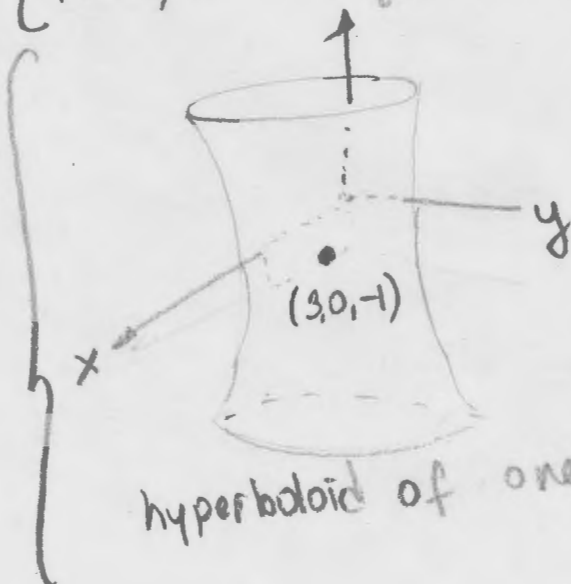 y
(3,0,-1)
x
hyperboloid of one